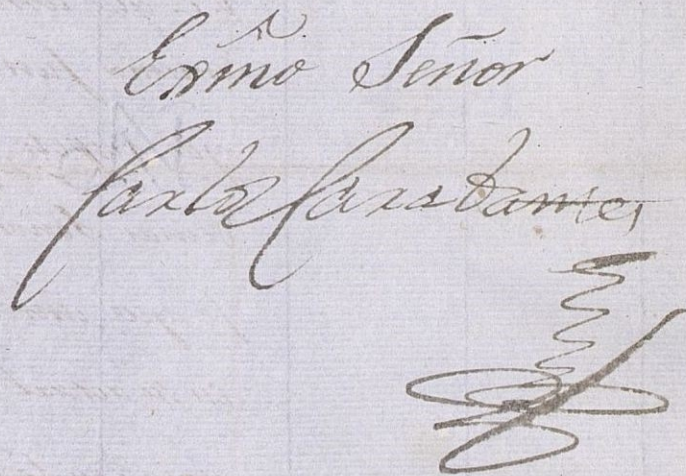 Exm̃o Señor
Carlos Carabantes